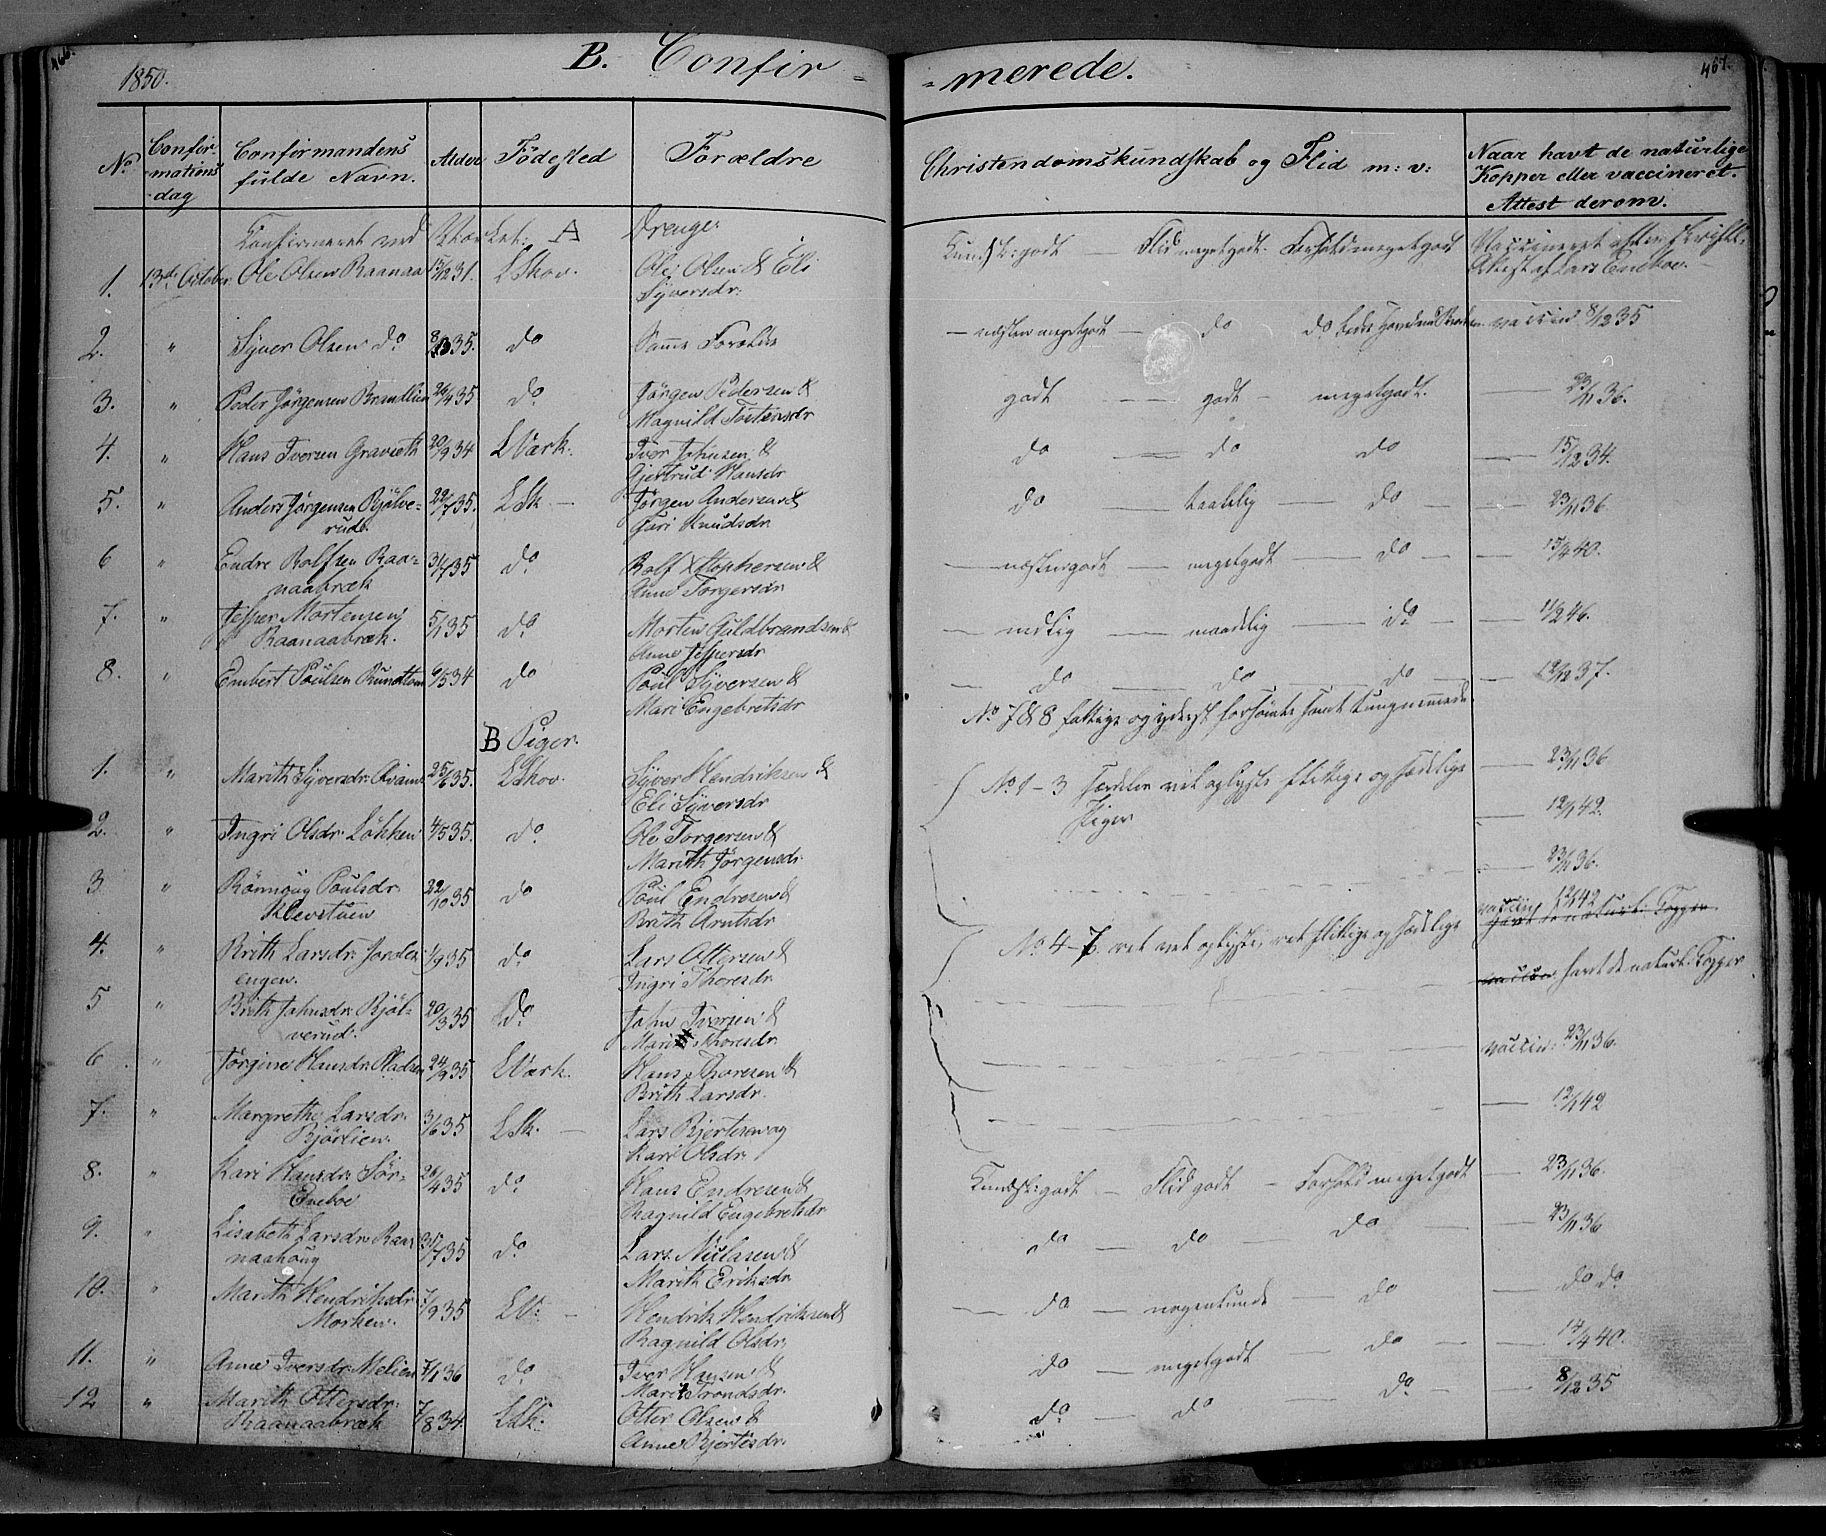 466.
1850.
B. Confir-
-merede.
467.
No
Confir-
-mations
-dag
Confirmandens
fulde Navn.
Alder
Födested
Forældre
Christendomskundskab og Flid m: v:
Naar havt de naturlige
Kopper eller vaccineret.
Attest derom.
Confirmeret ved Værket. A Drenge.
1. 13de October Ole Olsen Raanaa 15/12 31. LSkov. Ole Olsen & Eli
Syversdr.
Kundsk: godt — Flid megetgodt. Forhold megetgodt
Vaccineret efter skriftl.
Attest af Lars Eneboe. —
2. " Syver Olsen do 35. do Samme Forældre
— næsten megetgodt — do do vaccin 8/12 35
3. " Peder Jörgensen Brandlien 26/4 35 do Jörgen Pedersen &
Magnild Tostensdr
godt — godt — megetgodt. — 23/11 36.
4. " Hans Iversen Gravieth 20/9 34 LVærk. Iver Johnsen &
Gjertrud Hansdr
do — do do — 15/12 34.
5. " Anders Jörgensen Bjölve-
rud. 22/7 35. LSk — Jörgen Andersen &
Guri Knudsdr
do — taalelig — do — 23/11 36
6 " Endre Rolfsen Raa-
naabræk 31/7 35 do Rolf Xstophersen &
Anne Torgersdr
— næstengodt — megetgodt — do — 15/4 40.
7. " Jesper Mortensen
Raanaabræk. 5/1 35 do Morten Guldbrandsen &
Anne Jespersdr
— maadelig — do — 11/2 46.
8. " Embert Poulsen Rundtom 6/5 34 do Poul Syversen &
Mari Engebretsdr
— do — do — do — 12/12 37.
No 7 & 8 fattige og yderst forsömte samt tungnemmede
B Piger.
1. " Marith Syversdr. Kvam 25/6 35. LSkov. Syver Hendriksen &
Eli Syversdr
No 1-3 særdeles vel oplyste flittige og sædelige
Piger
— 23/11 36
2. " Ingri Olsdr. Lökken 4/5 35. do. Ole Torgersen &
Marith Jörgensdr.
— 12/1 42.
3 " Rönnoug Poulsdr.
Klevstuen 22/10 35 do Poul Endresen &
Brith Arntsdr
— 23/11 36.
4. " Brith Larsdr. Jordes
engen. 1/9 35 do. Lars Ottersen &
Ingri Thoresdr.
No 4-7. vel oplyste, flittige og sædelige
vaccin 12/1 42
havt de naturl: Kopper.
5 " Brith Johnsdr. Bjöl-
verud. 20/3 35 do. John Iversen &
Marit Thoresdr.
vaccin havt de naturl: Kopper
6 " Jörgine Hansdr. Pladsen 24/9 35 LVærk. Hans Thoresen &
Brith Larsdr.
vaccin: 23/11 36.
7. " Margrethe Larsdr.
Björlien. 3/6 35 LSk. — Lars Bjertesen og
Kari Olsdr.
— 12/1 42
8. " Kari Hansdr. Sör-
Eneboe 26/4 35 do. Hans Endresen &
Ragnild Engebretsdr
Kundsk: godt — Flid godt — Forhold megetgodt — 23/11 36.
9. " Lisabeth Larsdr. Raa-
naahoug 31/7 35 do. Lars Nielssen &
Marith Eriksdr.
do — do — do — 23/11 36
10. " Marith Hendriksdr.
Morken. 7/9 35 LV. — Hendrik Hendriksen &
Ragnild Olsdr.
— do — nogenlunde — do — do do.
11. " Anne Iversdr. Melien 7/1 36 do. Iver Hansen &
Marit Trondsdr.
do — megetgodt — do — 14/4 40.
12 " Marith Ottersdr.
Raanaabræk 7/8 34 LSk. Otter Olsen &
Anne Bjertesdr.
do. — do — do. — 8/12 35